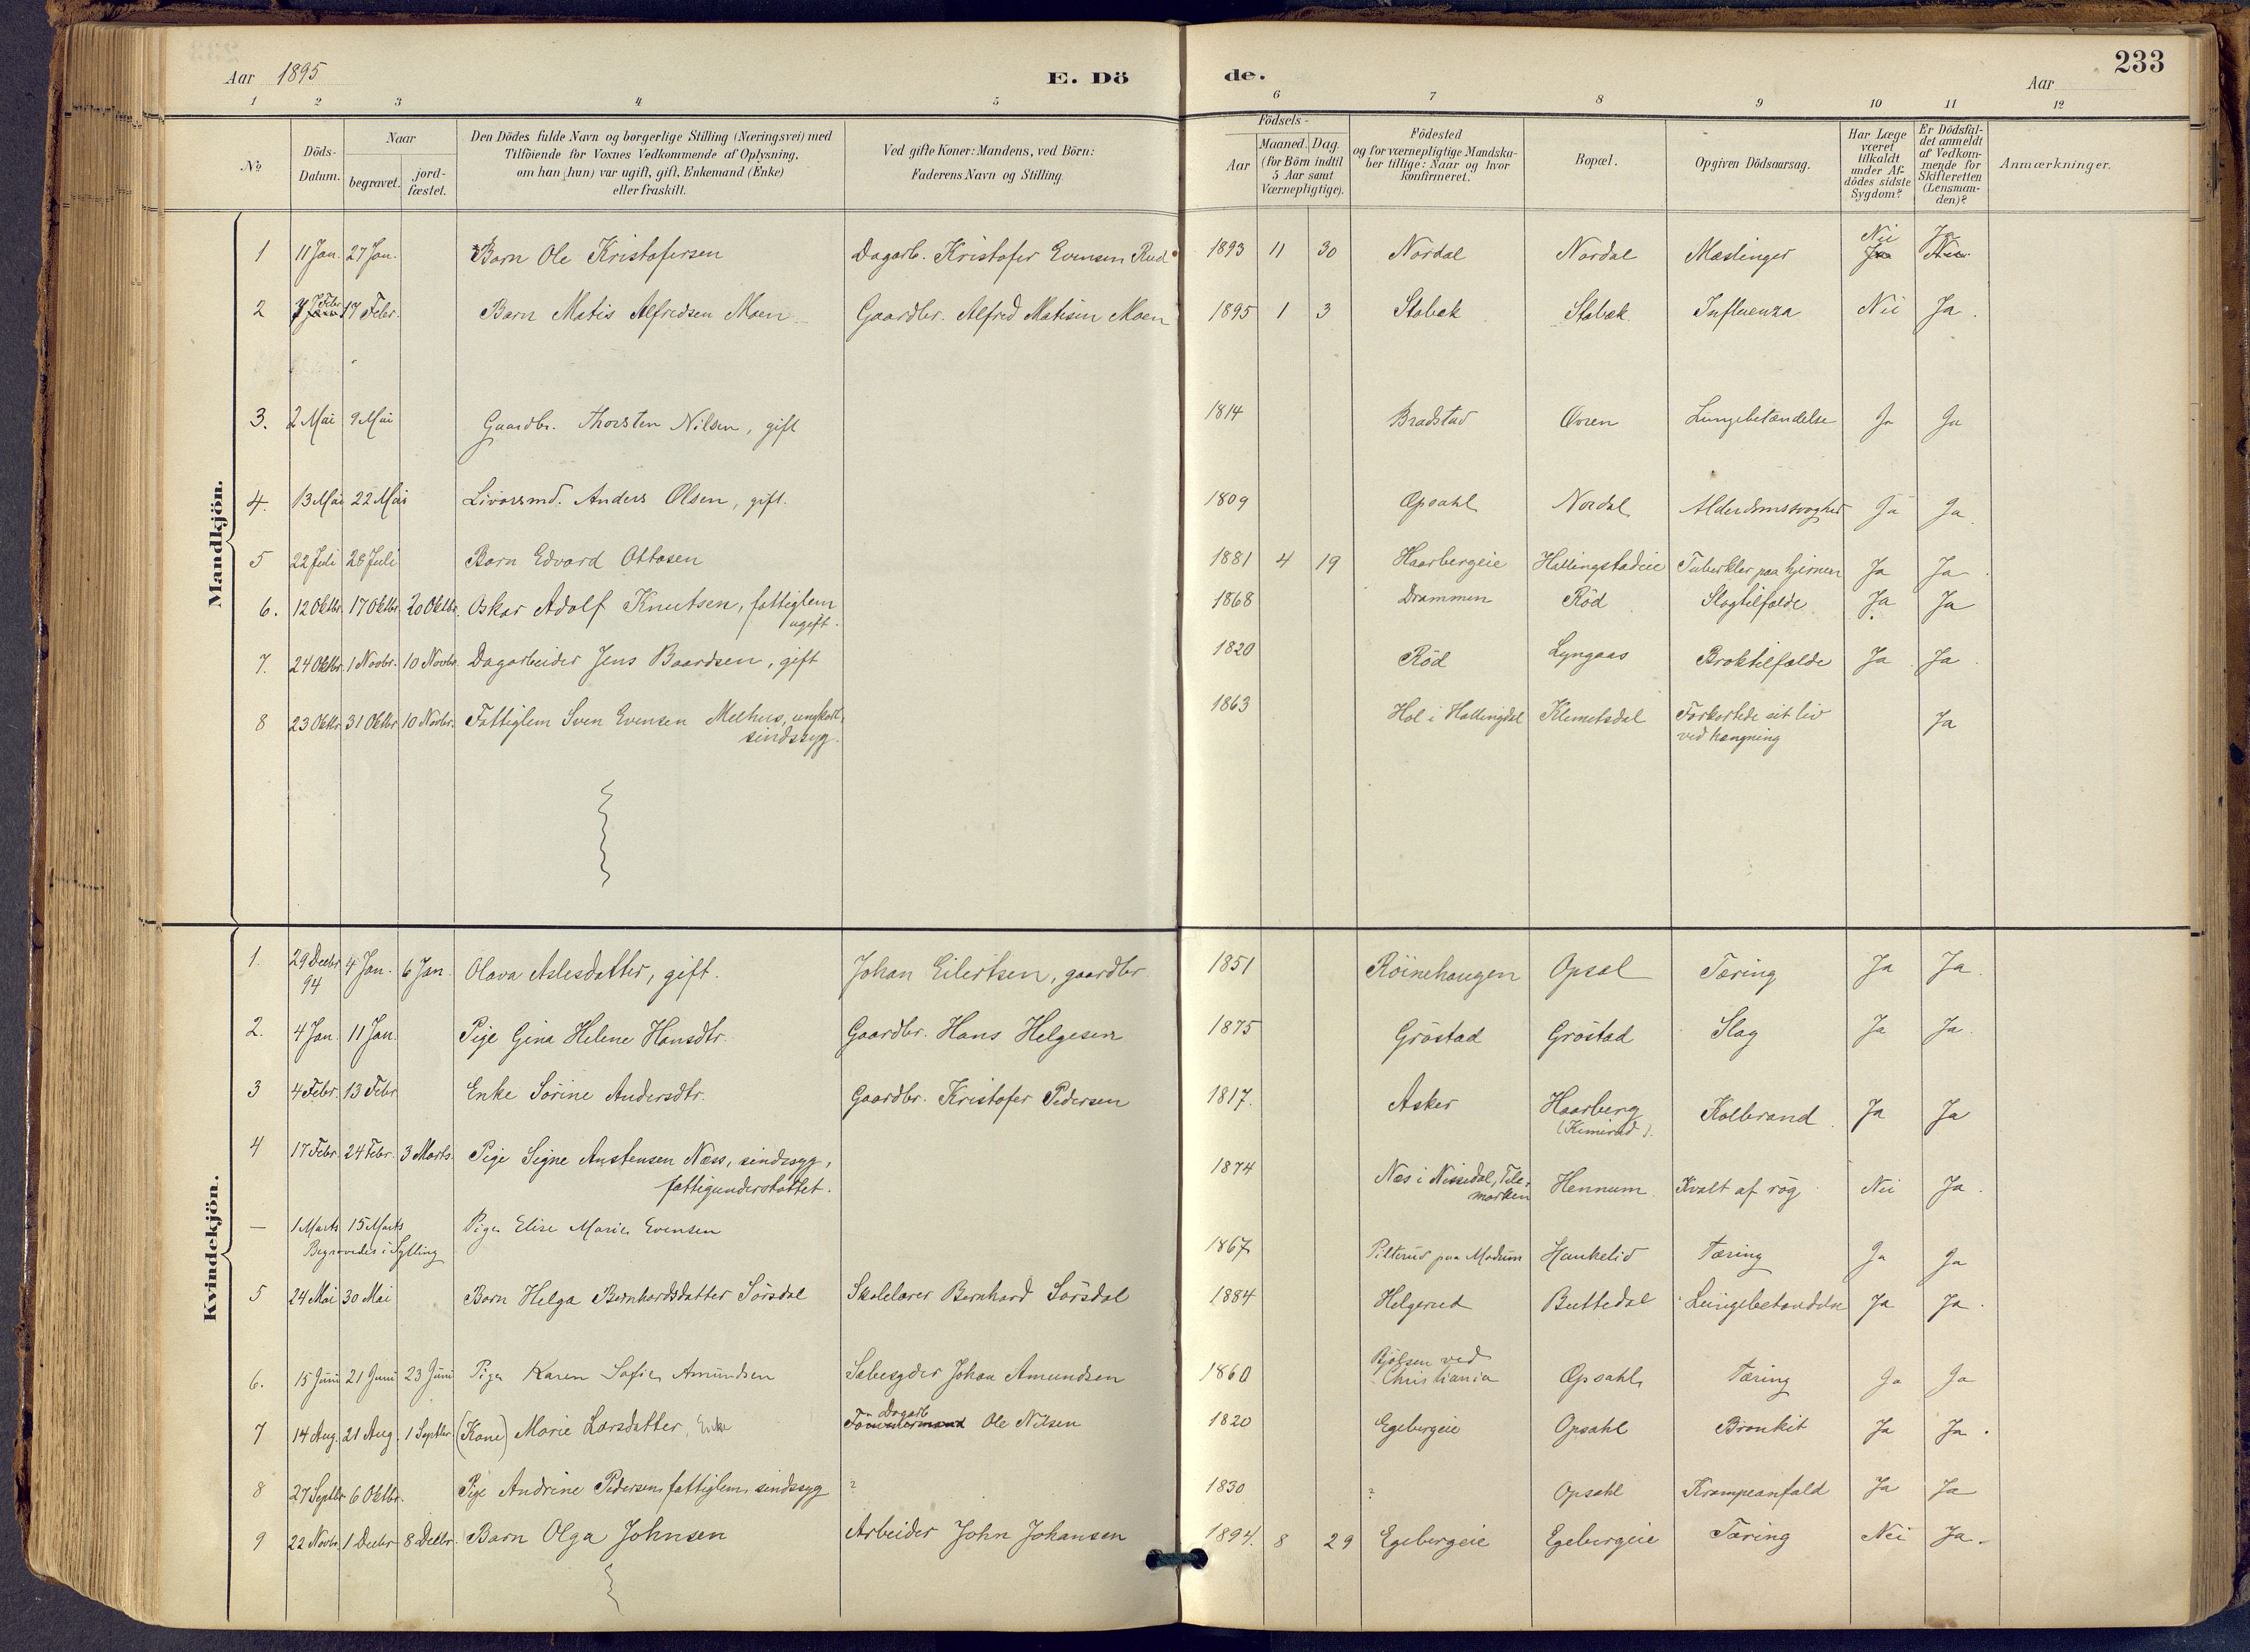 Aar 1895 E. Dö de. Aar 233
1 2 3 4 5 6 7 8 9 10 11 12
№ Döds-Datum. Naar begravet. jord-fæstet. Den Dödes fulde Navn og borgerlige Stilling (Næringsvei) med Tilföiende for Voxnes Vedkommende af Oplysning, om han (hun) var ugift, gift, Enkemand (Enke) eller fraskilt. Ved gifte Koner: Mandens, ved Börn: Faderens Navn og Stilling. Födsels- Aar Maaned. Dag. (for Börn indtil 5 Aar samt Værnepligtige). Födested og for værnepligtige Mandskaber tillige: Naar og hvor konfirmeret. Bopæl. Opgiven Dödsaarsag. Har Læge været tilkaldt under Afdödes sidste Sygdom? Er Dödsfaldet anmeldt af Vedkommende for Skifteretten (Lensmanden)? Anmærkninger.
Mandkjön.
1 11 Jan. 27 Jan. Barn Ole Kristofersen Dagarb. Kristofer Evensen Rud 1893 11 30 Nordal Nordal Mæslinger Nei Ja
2 7 Febr 17 Febr. Barn Matis Alfredsen Moen Gaardbr. Alfred Matisen Moen 1895 1 3 Stabæk Stabæk Influenza Nei Ja.
3. 2 Mai 9 Mai Gaardbr. Thorsten Nilsen, gift 1814 Bradstad Ovren Lungebetændelse Ja Ja
4. 13 Mai 22 Mai Livørsmd. Anders Olsen, gift. 1809 Opsahl Nordal Alderdomssvaghed Ja Ja
5 22 Juli 28 Juli Barn Edvard Ottosen 1881 4 19 Haarbergeie Hallingstadeie Tuberkler paa hjernen Ja Ja
6. 12 Oktbr. 17 Oktbr. 20 Oktbr. Oskar Adolf Knutsen, fattiglem ugift. 1868 Drammen Röd Slagtilfælde Ja Ja
7. 24 Oktbr. 1 Novbr. 10 Novbr. Dagarbeider Jens Baardsen, gift 1820 Röd Lyngaas Broktilfælde Ja Ja
8 23 Oktbr. 31 Oktbr. 10 Novbr. Fattiglem Sven Evensen Melhus, ungkarl, sindssyg. 1863 Hol i Hallingdal Klemetsdal Forkortede sit liv ved hængning Ja
Kvindekjön.
1. 29 Decbr 94 4 Jan. 6 Jan. Olava Aslesdatter, gift. Johan Eilertsen, gaardbr. 1851 Röinehaugen Opsal Tæring Ja Ja.
2. 4 Jan. 11 Jan. Pige Gina Helene Hansdtr. Gaardbr. Hans Helgesen 1875 Gröstad Gröstad Slag Ja Ja
3 4 Febr. 13 Febr. Enke Sörine Andersdtr. Gaardbr. Kristofer Pedersen 1817. Asker Haarberg (Kimerud). Kolbrand Ja Ja
4 17 Febr. 24 Febr. 3 Marts. Pige Signe Anstensen Næss, sindssyg, fattigunderstøttet. 1874 Næs i Nissedal, Telemarken Hennum Kvalt af røg Nei Ja.
— 1 Marts 15 Marts Pige Elise Marie Evensen 1867 Pilterud paa Modum Haukelid Tæring Ja Ja
Begravedes i Sylling
5 24 Mai 30 Mai Barn Helga Bernhardsdatter Sörsdal Skolelærer Bernhard Sörsdal 1884 Helgerud Buttedal Lungebetændelse Ja Ja.
6. 15 Juni 21 Juni 23 Juni Pige Karen Sofie Amundsen Sæbesyder Johan Amundsen 1860 Bjølsen ved Christiania Opsahl Tæring Ja Ja
7 14 Aug. 21 Aug. 1 Septbr. (Kone) Marie Larsdatter, Enke Tømmermand Dagarb Ole Nilsen 1820 Egebergeie Opsahl Bronkit Ja Ja.
8 27 Septbr 6 Oktbr. Pige Andrine Pedersen, fattiglem, sindssyg ? 1830 ? Opsahl Krampeanfald Ja Ja
9 22 Novbr. 1 Decbr 8 Decbr. Barn Olga Johnsen Arbeider John Johansen 1894. 8 29 Egebergeie Egebergeie Tæring Nei Ja.